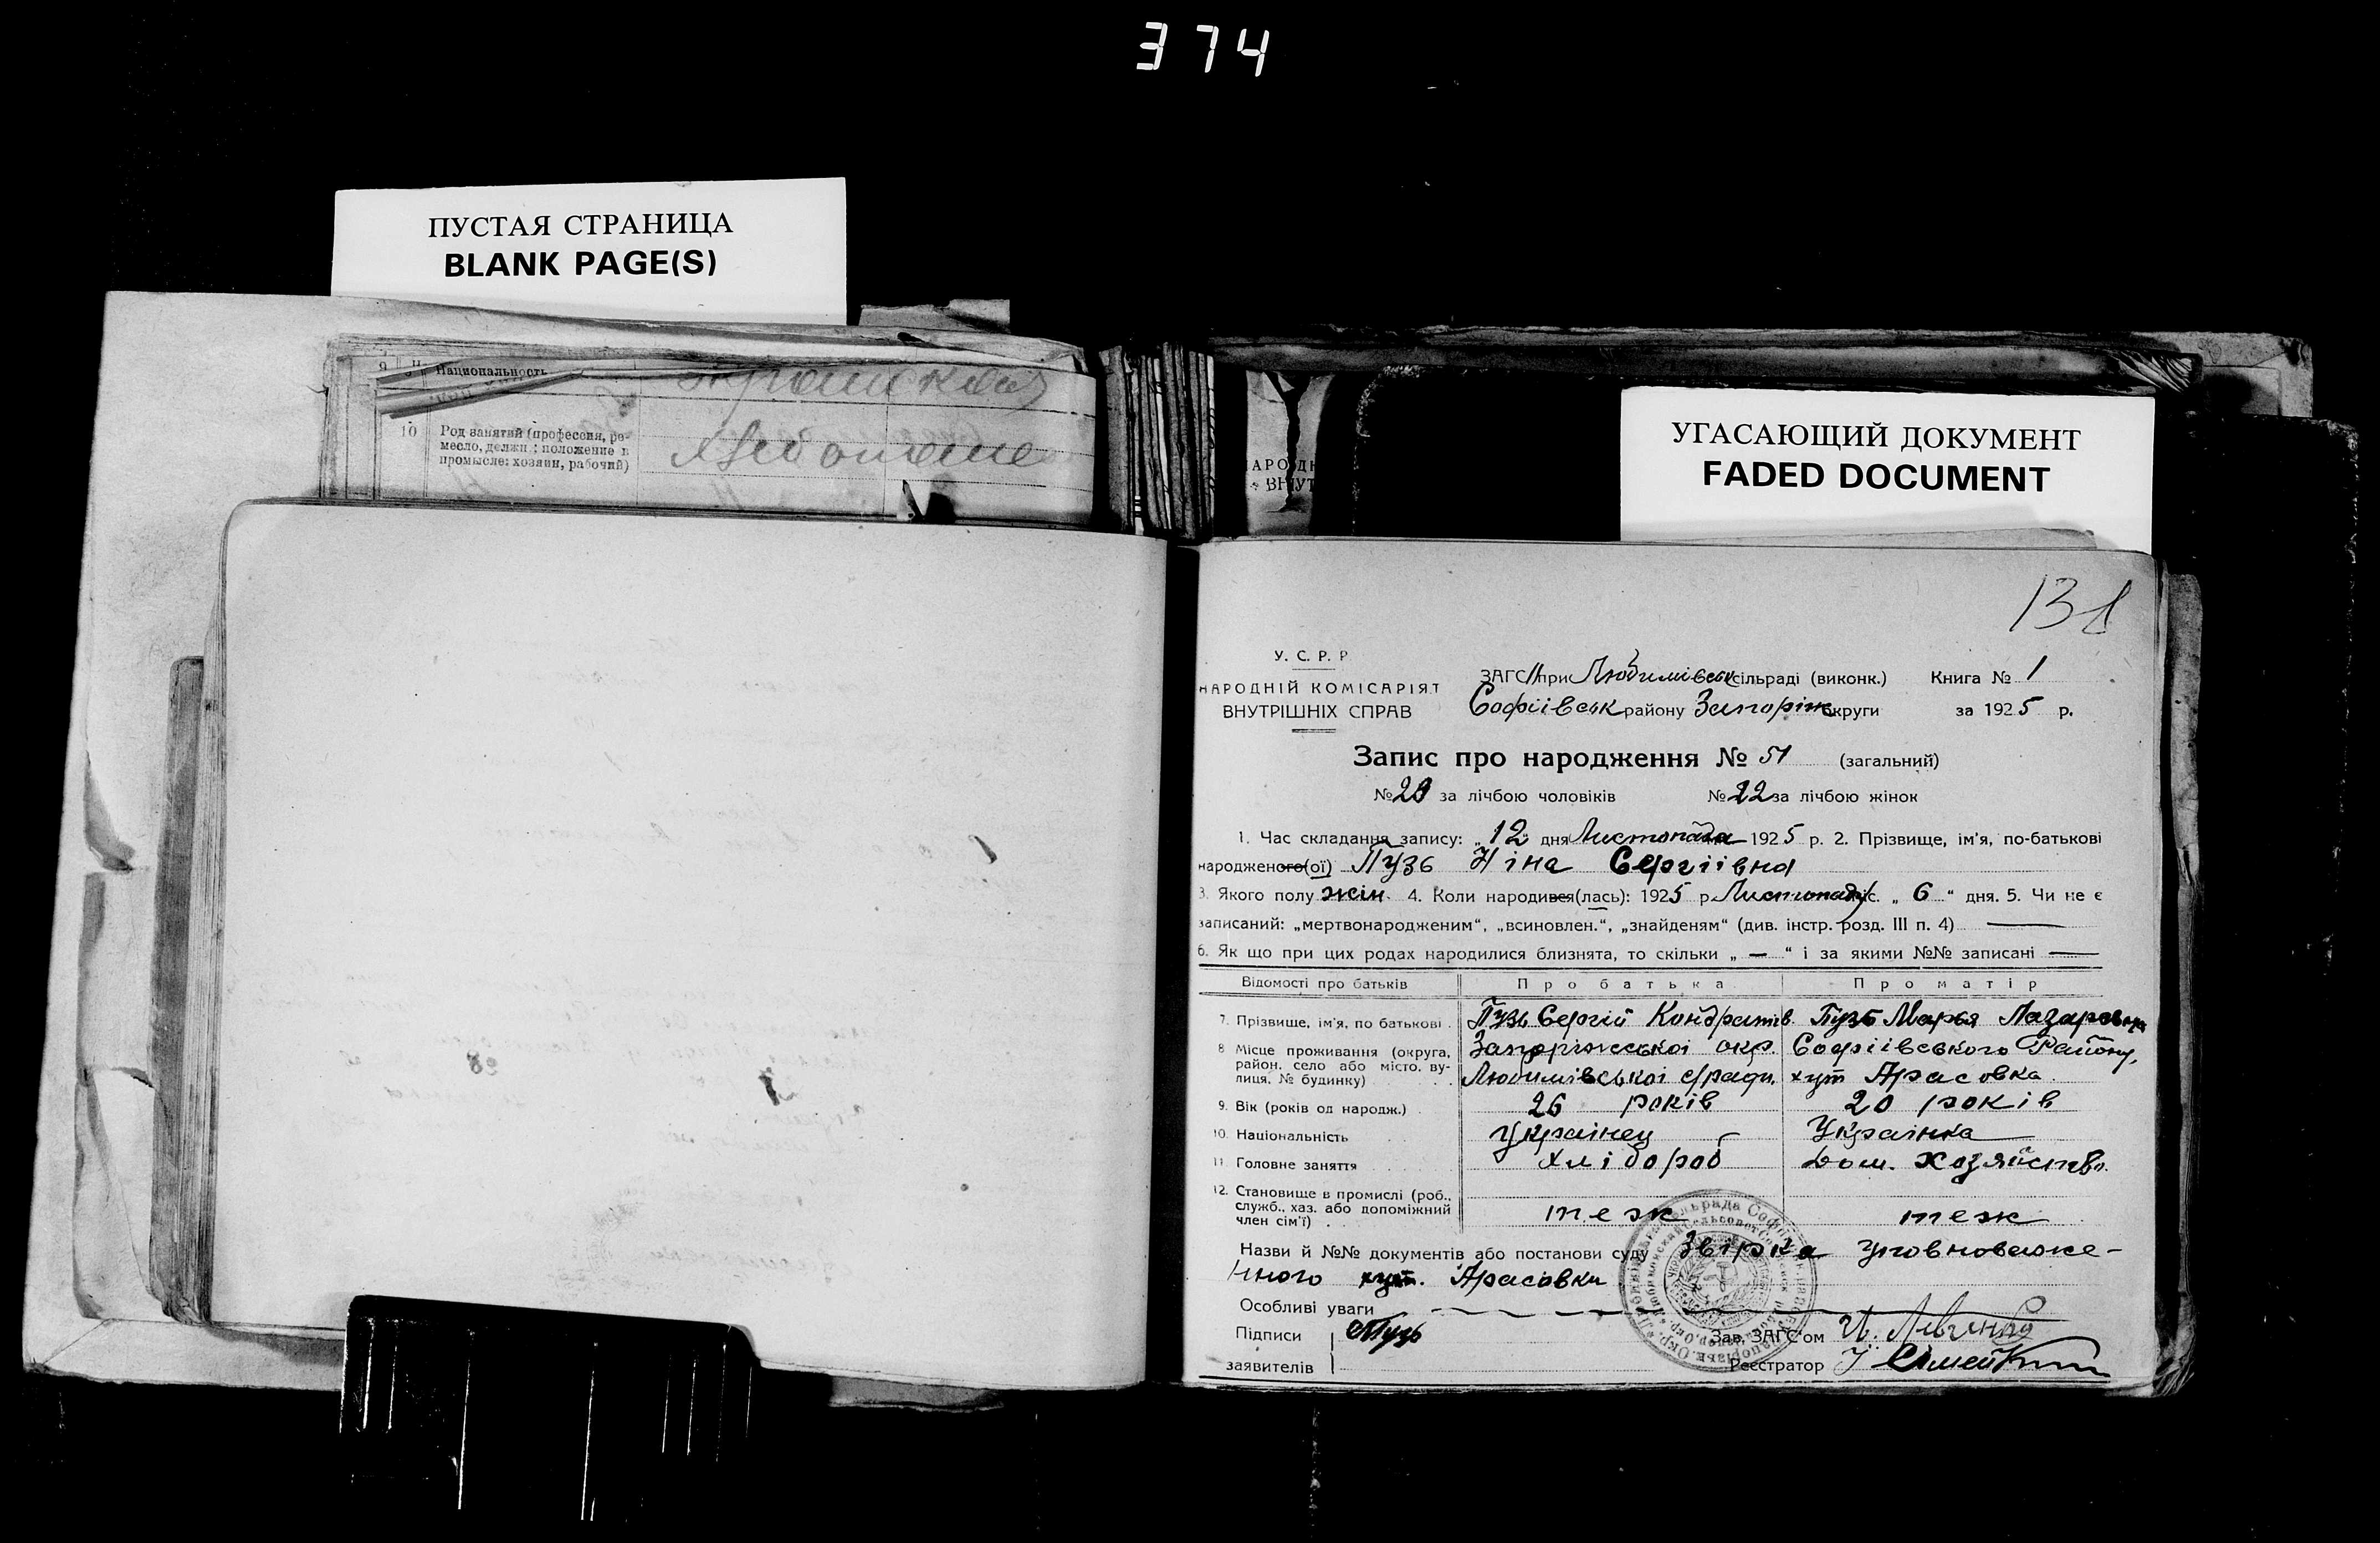 374
ПУСТАЯ СТРАНИЦА
BLANK PAGE(S)
Национальность
10 Род занятий (профессия, ре-
месло, должн.; положение в
промысле: хозяин, рабочий)
УГАСАЮЩИЙ ДОКУМЕНТ
FADED DOCUMENT
131
У. С. Р. Р
НАРОДНІЙ КОМІСАРІЯТ
ВНУТРІШНІХ СПРАВ
ЗАГС при Любимівськ сільраді (виконк.) Книга № 1
Софіївськ району Запоріж округи за 1925 р.
Запис про народження № 51 (загальний)
№ 29 за лічбою чоловіків № 22 за лічбою жінок
1. Час складання запису: „12 дня Листопада 1925 р. 2. Прізвище, ім'я, по-батькові
народженого(ої) Пузь Ніна Сергіївна
3. Якого полу жін. 4. Коли народився(лась): 1925 р. Листопаду міс. „ 6 “ дня. 5. Чи не є
записаний: „мертвонародженим“, „всиновлен.“, „знайденям“ (див. інстр. розд. III п. 4) —
6. Як що при цих родах народилися близнята, то скільки „ — “ і за якими №№ записані —
Відомості про батьків Про батька Про матір
7. Прізвище, ім'я, по батькові Пузь Сергій Кондратів. Пузь Марья Лазаревна
8 Місце проживання (округа,
район, село або місто, ву-
лиця, № будинку)
Запоріжської окр. Софіївського Району,
Любимівської с/ради, хут Арасовка.
9. Вік (років од народж.) 26 років 20 років
10. Національність Українец Українка
11. Головне заняття хлібороб Дом. хозяйство.
12. Становище в промислі (роб.,
служб., хаз. або допоміжний
член сім'ї)
теж теж
Назви й №№ документів або постанови суду Звірка уповноваже-
нного хут. Арасовки
Особливі уваги
Підписи Пузь
Зав. ЗАГС'ом
заявителів Реєстратор